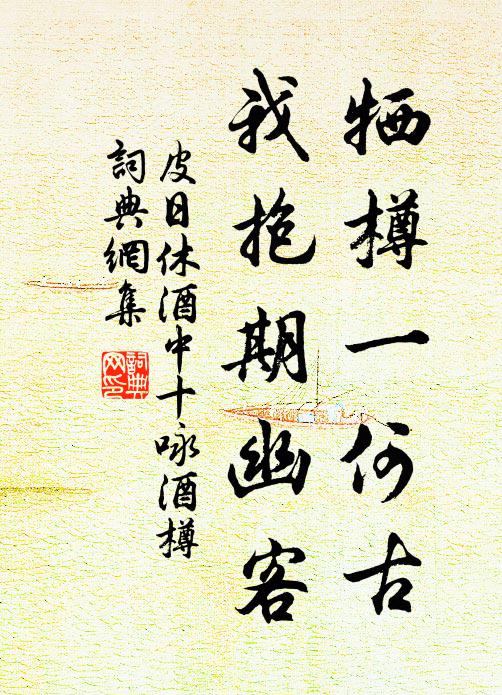 牺樽一何古
我抱期幽客
皮日休酒中十咏酒樽
詞典網集
詞典网印